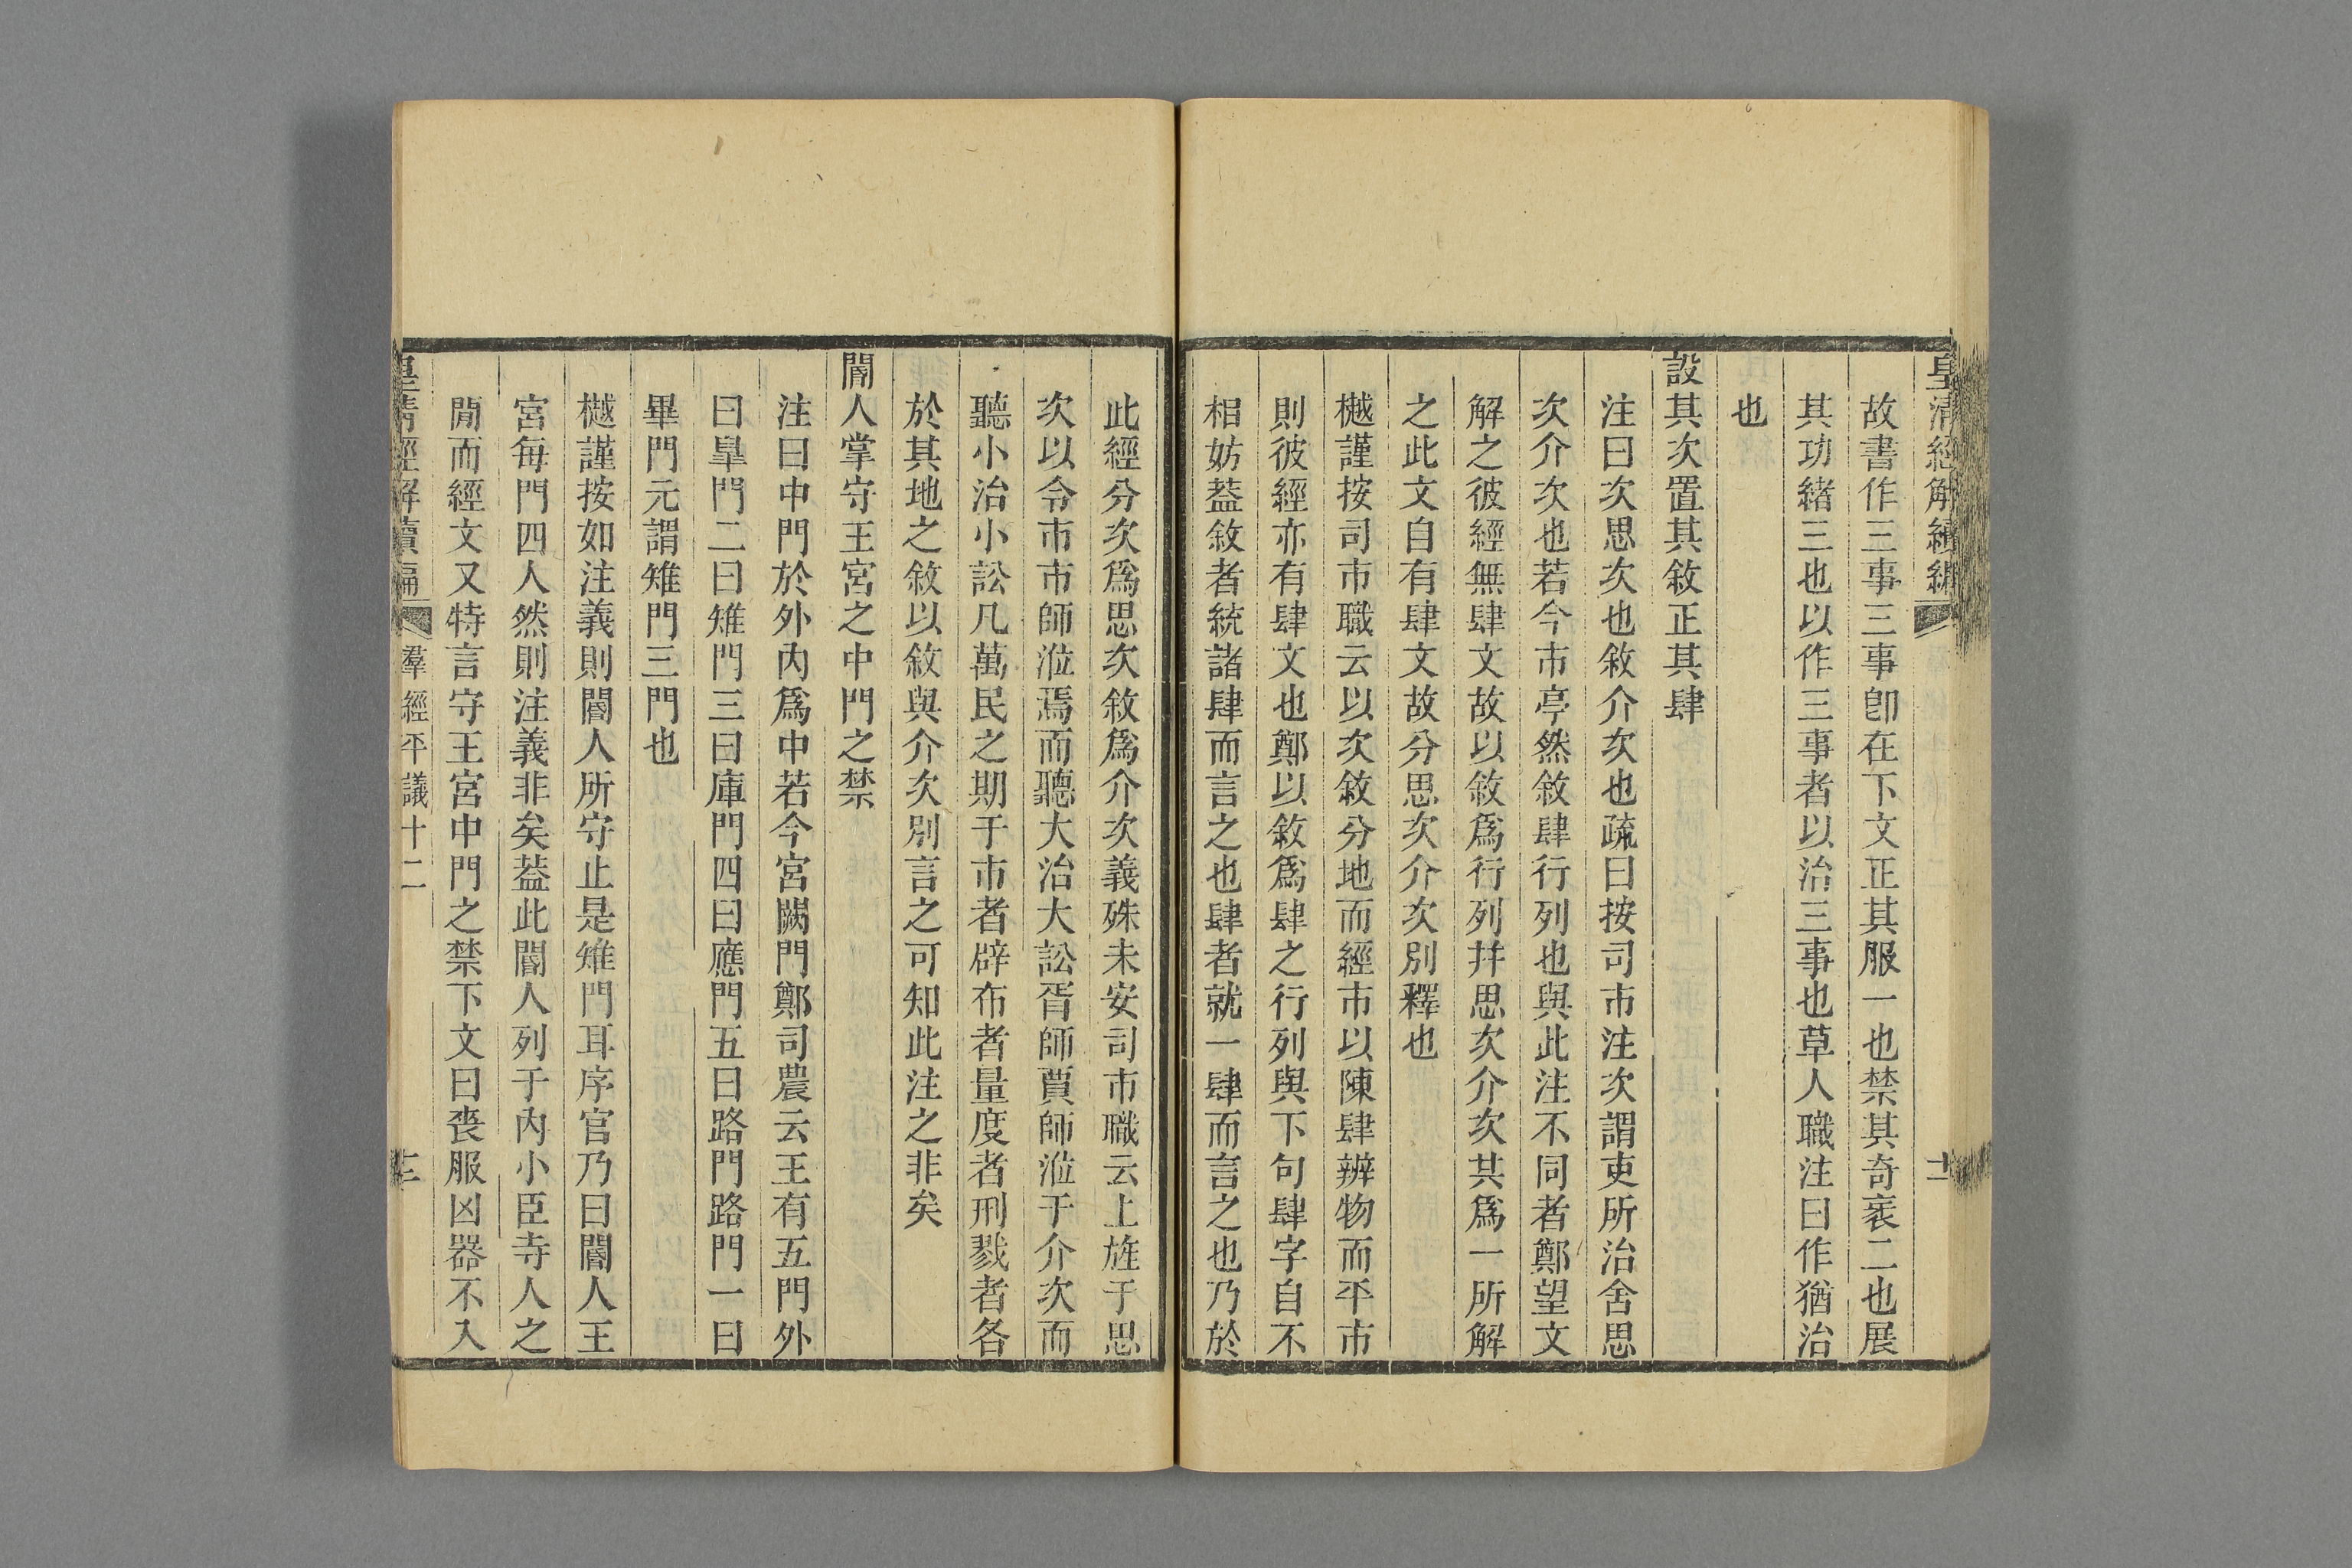 皇清經解續編
十二
故書作三事三事卽在下文正其服一也禁其奇衺二也展
其功緒三也以作三事者以治三事也草人職注曰作猶治
也
設其次置其敘正其肆
注曰次思次也敘介次也疏曰按司市注次謂吏所治舍思
次介次也若今市亭然敘肆行列也與此注不同者鄭望文
解之彼經無肆文故以敘爲行列幷思次介次其爲一所解
之此文自有肆文故分思次介次別釋也
樾謹按司市職云以次敘分地而經市以陳肆辨物而平市
則彼經亦有肆文也鄭以敘爲肆之行列與下句肆字自不
相妨葢敘者統諸肆而言之也肆者就一肆而言之也乃於
此經分次爲思次敘爲介次義殊未安司市職云上旌于思
次以令市市師涖焉而聽大治大訟胥師賈師涖于介次而
聽小治小訟凡萬民之期于市者辟布者量度者刑戮者各
於其地之敘以敘與介次別言之可知此注之非矣
閽人掌守王宮之中門之禁
注曰中門於外內爲中若今宮闕門鄭司農云王有五門外
曰皐門二曰雉門三曰庫門四曰應門五曰路門路門一曰
畢門元謂雉門三門也
樾謹按如注義則閽人所守止是雉門耳序官乃曰閽人王
宮每門四人然則注義非矣葢此閽人列于內小臣寺人之
閒而經文又特言守王宮中門之禁下文曰喪服凶器不入
皇清經解續編
羣經平議十二